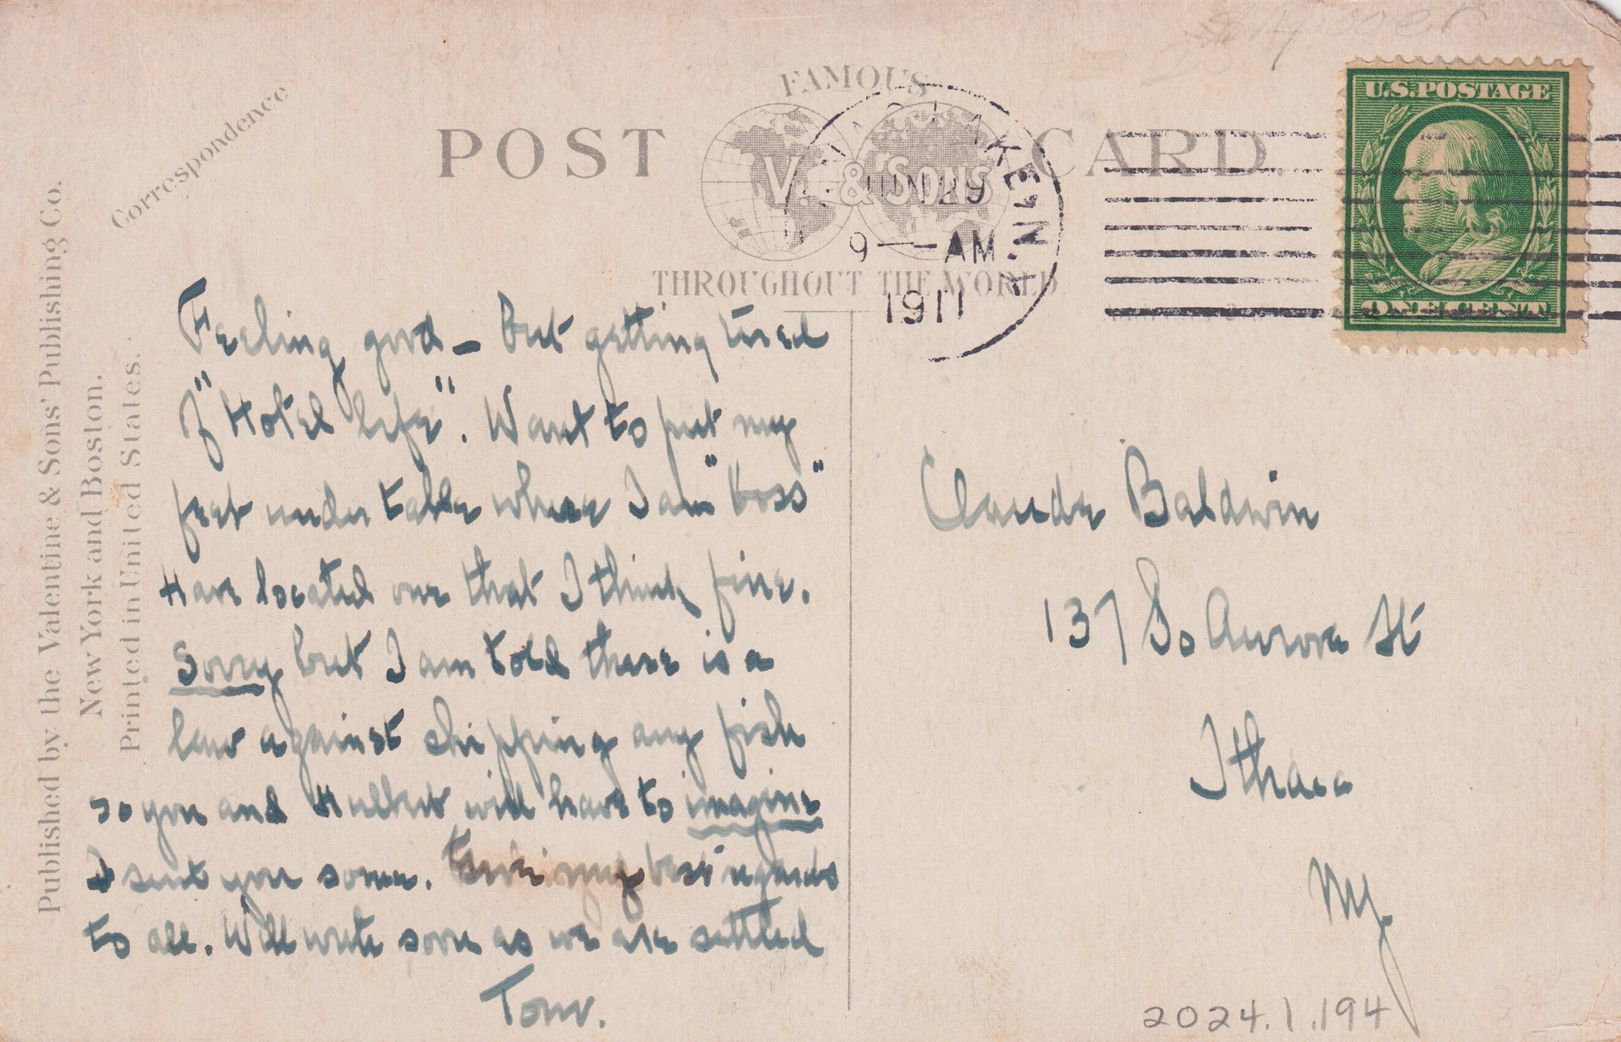 Correspondence
POST CARD
FAMOUS
V. & SONS
THROUGHOUT THE WORLD
Published by the Valentine & Sons' Publishing Co.
New York and Boston.
Printed in United States.
LAKE N.Y.
JUN 29
9 — AM
1911
U.S. POSTAGE
ONE CENT
Feeling good – But getting tired
of "Hotel life". Want to put my
feet under table where I am "boss"
Have located one that I think fine.
Sorry but I am told there is a
law against shipping any fish
so you and Hulbert will have to imagine
I sent you some. Give my best regards
to all. Will write soon as we are settled
Tom.
Claude Baldwin
137 So Aurora St
Ithaca
NY.
2024.1.194